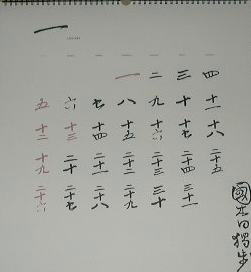 一
一 二 三 四
五 六 七 八 九 十 十一
十二 十三 十四 十五 十六 十七 十八
十九 二十 二十一 二十二 二十三 二十四 二十五
二十六 二十七 二十八 二十九 三十 三十一
國木田獨步